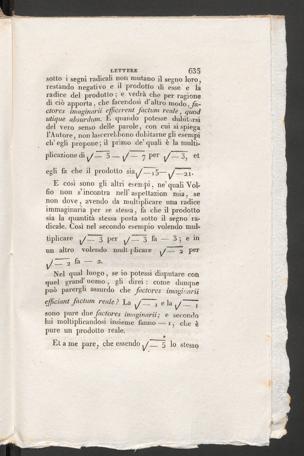 LETTERE 635
sotto i segni radicali non mutano il segno loro,
restando negativo e il prodotto di esse e la
radice del prodotto; e vedrà che per ragione
di ciò apporta, che facendosi d'altro modo, fa-
ctores imaginarii efficerent factum reale, quod
utique absurdum. E quando potesse dubitarsi
del vero senso delle parole, con cui si spiega
l'Autore, non lascerebbono dubitarne gli esempi
ch'egli propone; il primo de' quali è la multi-
plicazione di √— 5 — √— 7 per √— 3, et
egli fa che il prodotto sia √—15—√—21.
E così sono gli altri esempi, ne' quali Vol-
fio non s'incontra nell'aspettazion mia, se
non dove, avendo da multiplicare una radice
immaginaria per se stessa, fa che il prodotto
sia la quantità stessa posta sotto il segno ra-
dicale. Così nel secondo esempio volendo mul-
tiplicare √— 3 per √— 3 fa — 3; e in
un altro volendo multiplicare √— 2 per
√— 2 fa — 2.
Nel qual luogo, se io potessi disputare con
quel grand'uomo, gli direi: come dunque
può parergli assurdo che factores imaginarii
efficiant factum reale? La √— 1 e la √— 1
sono pure due factores imaginarii; e secondo
lui moltiplicandosi insieme fanno — 1, che è
pure un prodotto reale.
Et a me pare, che essendo √— 5 lo stesso